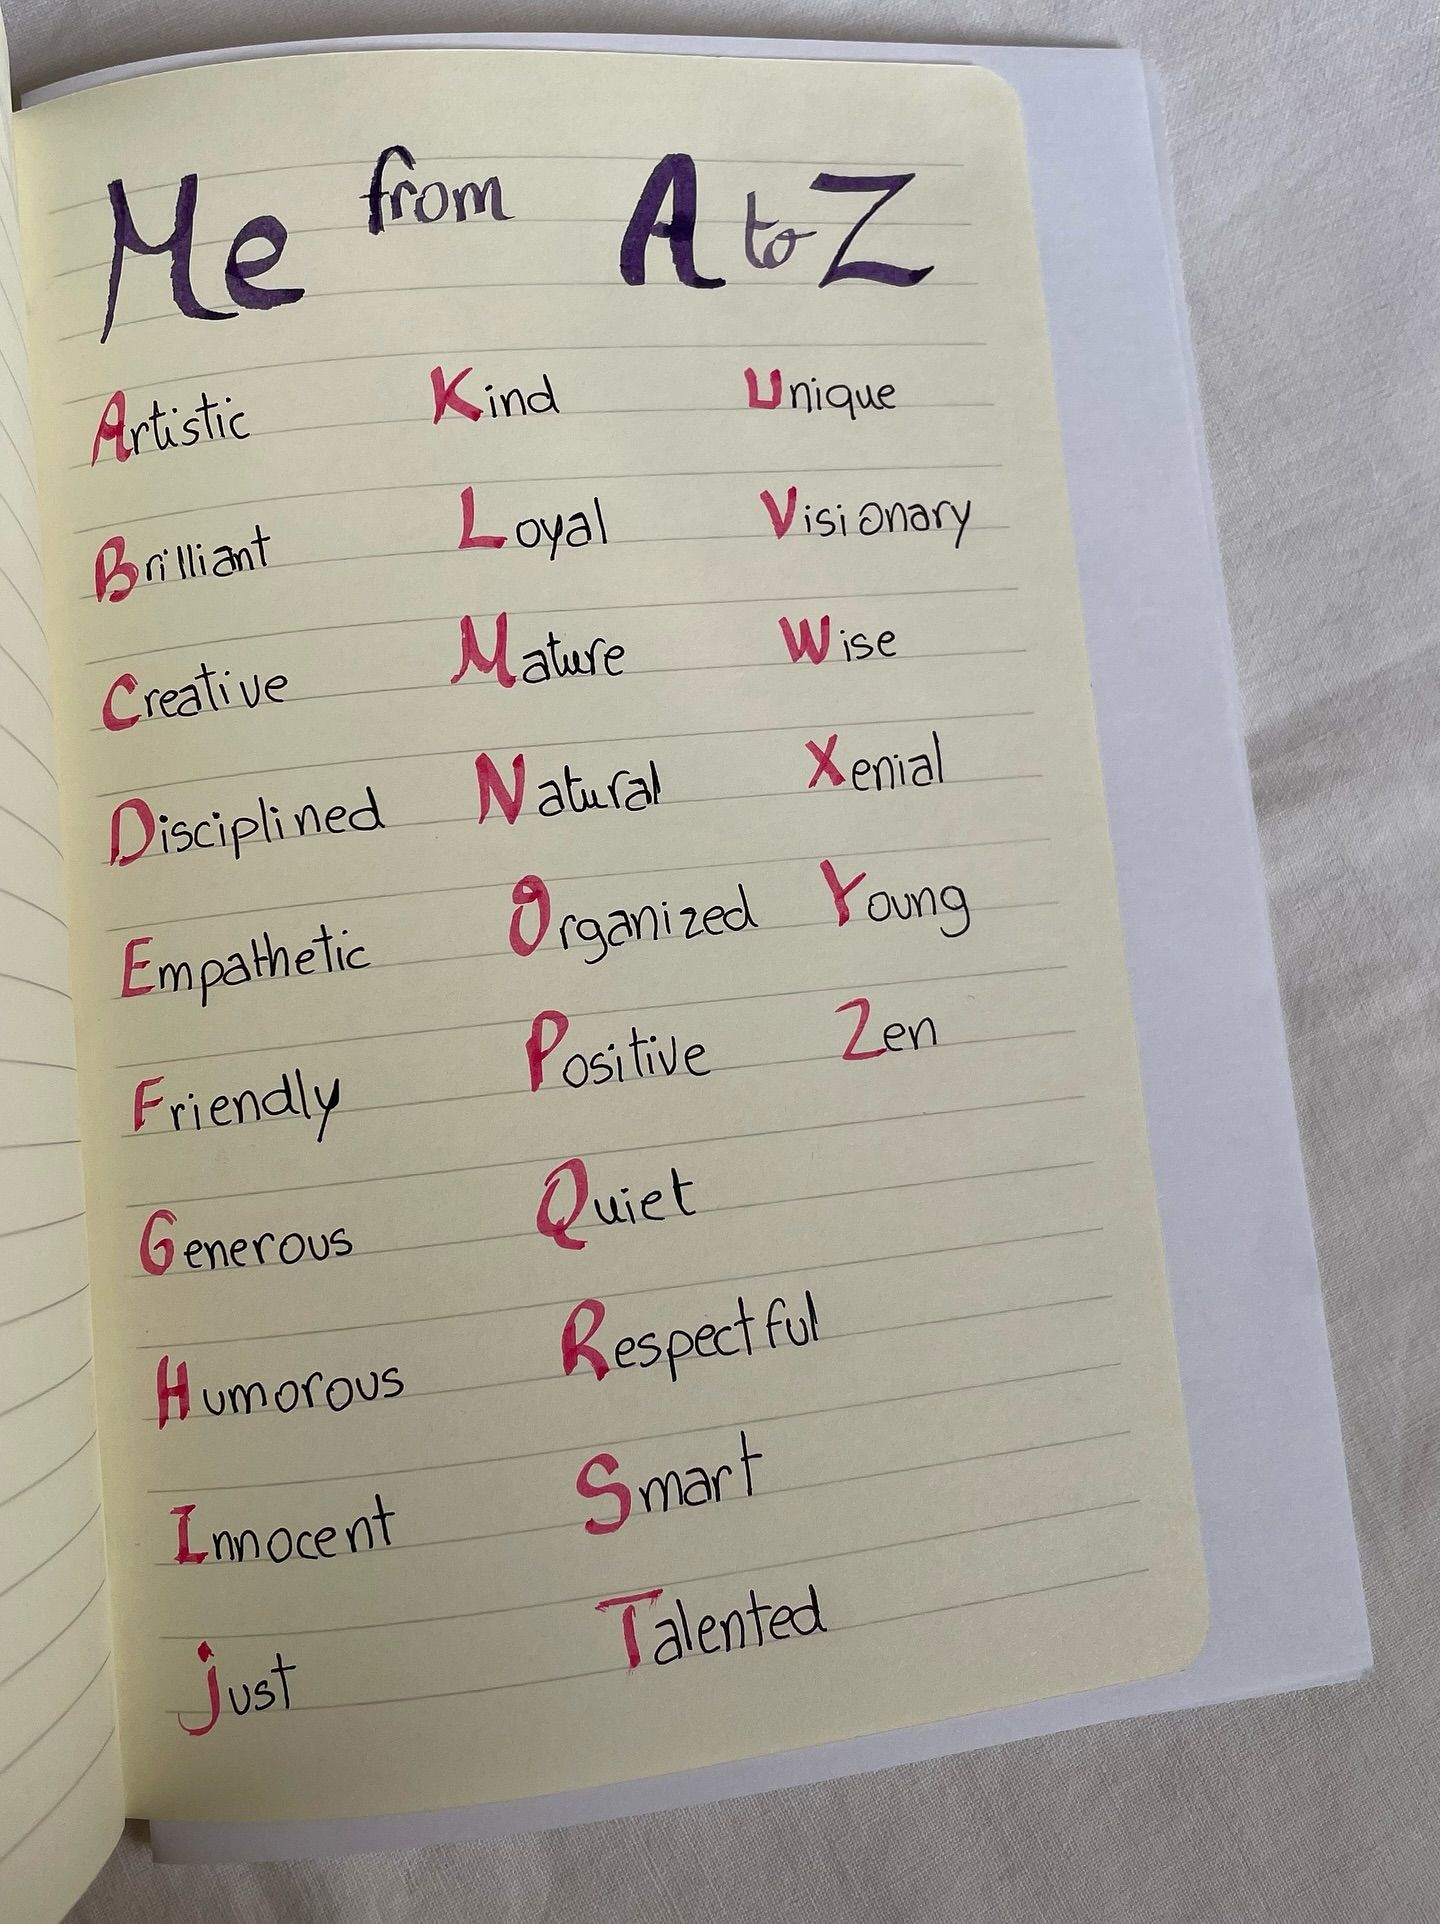 Me from A to Z
Artistic
Brilliant
Creative
Disciplined
Empathetic
Friendly
Generous
Humorous
Innocent
just
Kind
Loyal
Mature
Natural
Organized
Positive
Quiet
Respectful
Smart
Talented
Unique
Visionary
Wise
Xenial
Young
Zen